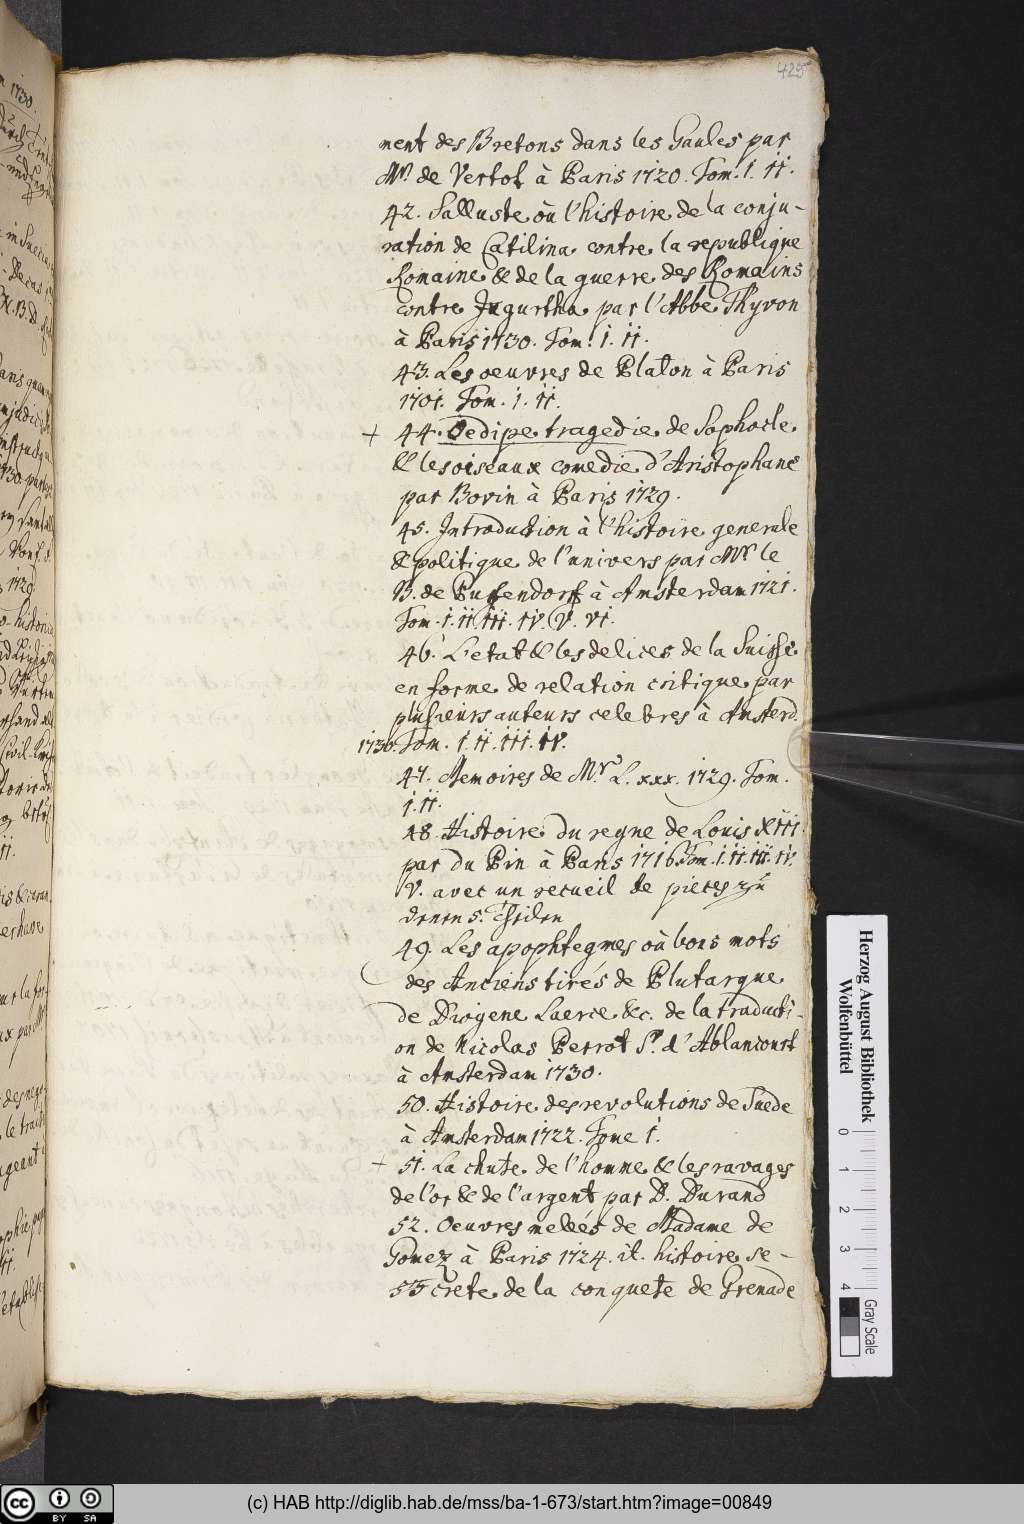 425
nent des Bretons dans les Gaules par
Mr. de Vertot à Paris 1720. Tom. I. II.
42. Salluste où l'histoire de la conju-
ration de Catilina contre la republique
Romaine & de la guerre des Romains
contre Jugurtha par l'Abbe Thyvon
à Paris 1730. Tom. I. II.
43. Les oeuvres de Platon à Paris
1701. Tom. I. II.
+ 44. Oedipe tragedie de Sophocle
& les oiseaux comedie d'Aristophane
par Bovin à Paris 1729.
45. Introduction à l'histoire generale
& politique de l'univers par Mr. le
B. de Pufendorf à Amsterdam 1721.
Tom. I. II. III. IV. V. VI.
46. L'etat & les delices de la Suisse
en forme de relation critique par
plusieurs auteurs celebres à Amsterd.
1730. Tom. I. II. III. IV.
47. Memoires de Mr. L. xxx. 1729. Tom.
I. II.
48. Histoire du regne de Louis XIII
par du Pin à Paris 1716 Tom. I. II. III. IV.
V. avec un recueil de pieces zu
denen 5. Theilen
49. Les apophtegmes où bons mots
des Anciens tirés de Plutarque
de Diogene Laerce &c. de la traducti-
on de Nicolas Perrot Sr. d'Ablancourt
à Amsterdam 1730.
50. Histoire des revolutions de Suede
à Amsterdam 1722. Tome I.
+ 51. La chute de l'homme & les ravages
de l'or & de l'argent par D. Durand
52. Oeuvres melées de Madame de
Gomez à Paris 1724. it. histoire se-
53 crete de la conquete de Grenade
Herzog August Bibliothek
Wolfenbüttel
0 1 2 3 4
Gray Scale
(c) HAB http://diglib.hab.de/mss/ba-1-673/start.htm?image=00849
cc BY SA